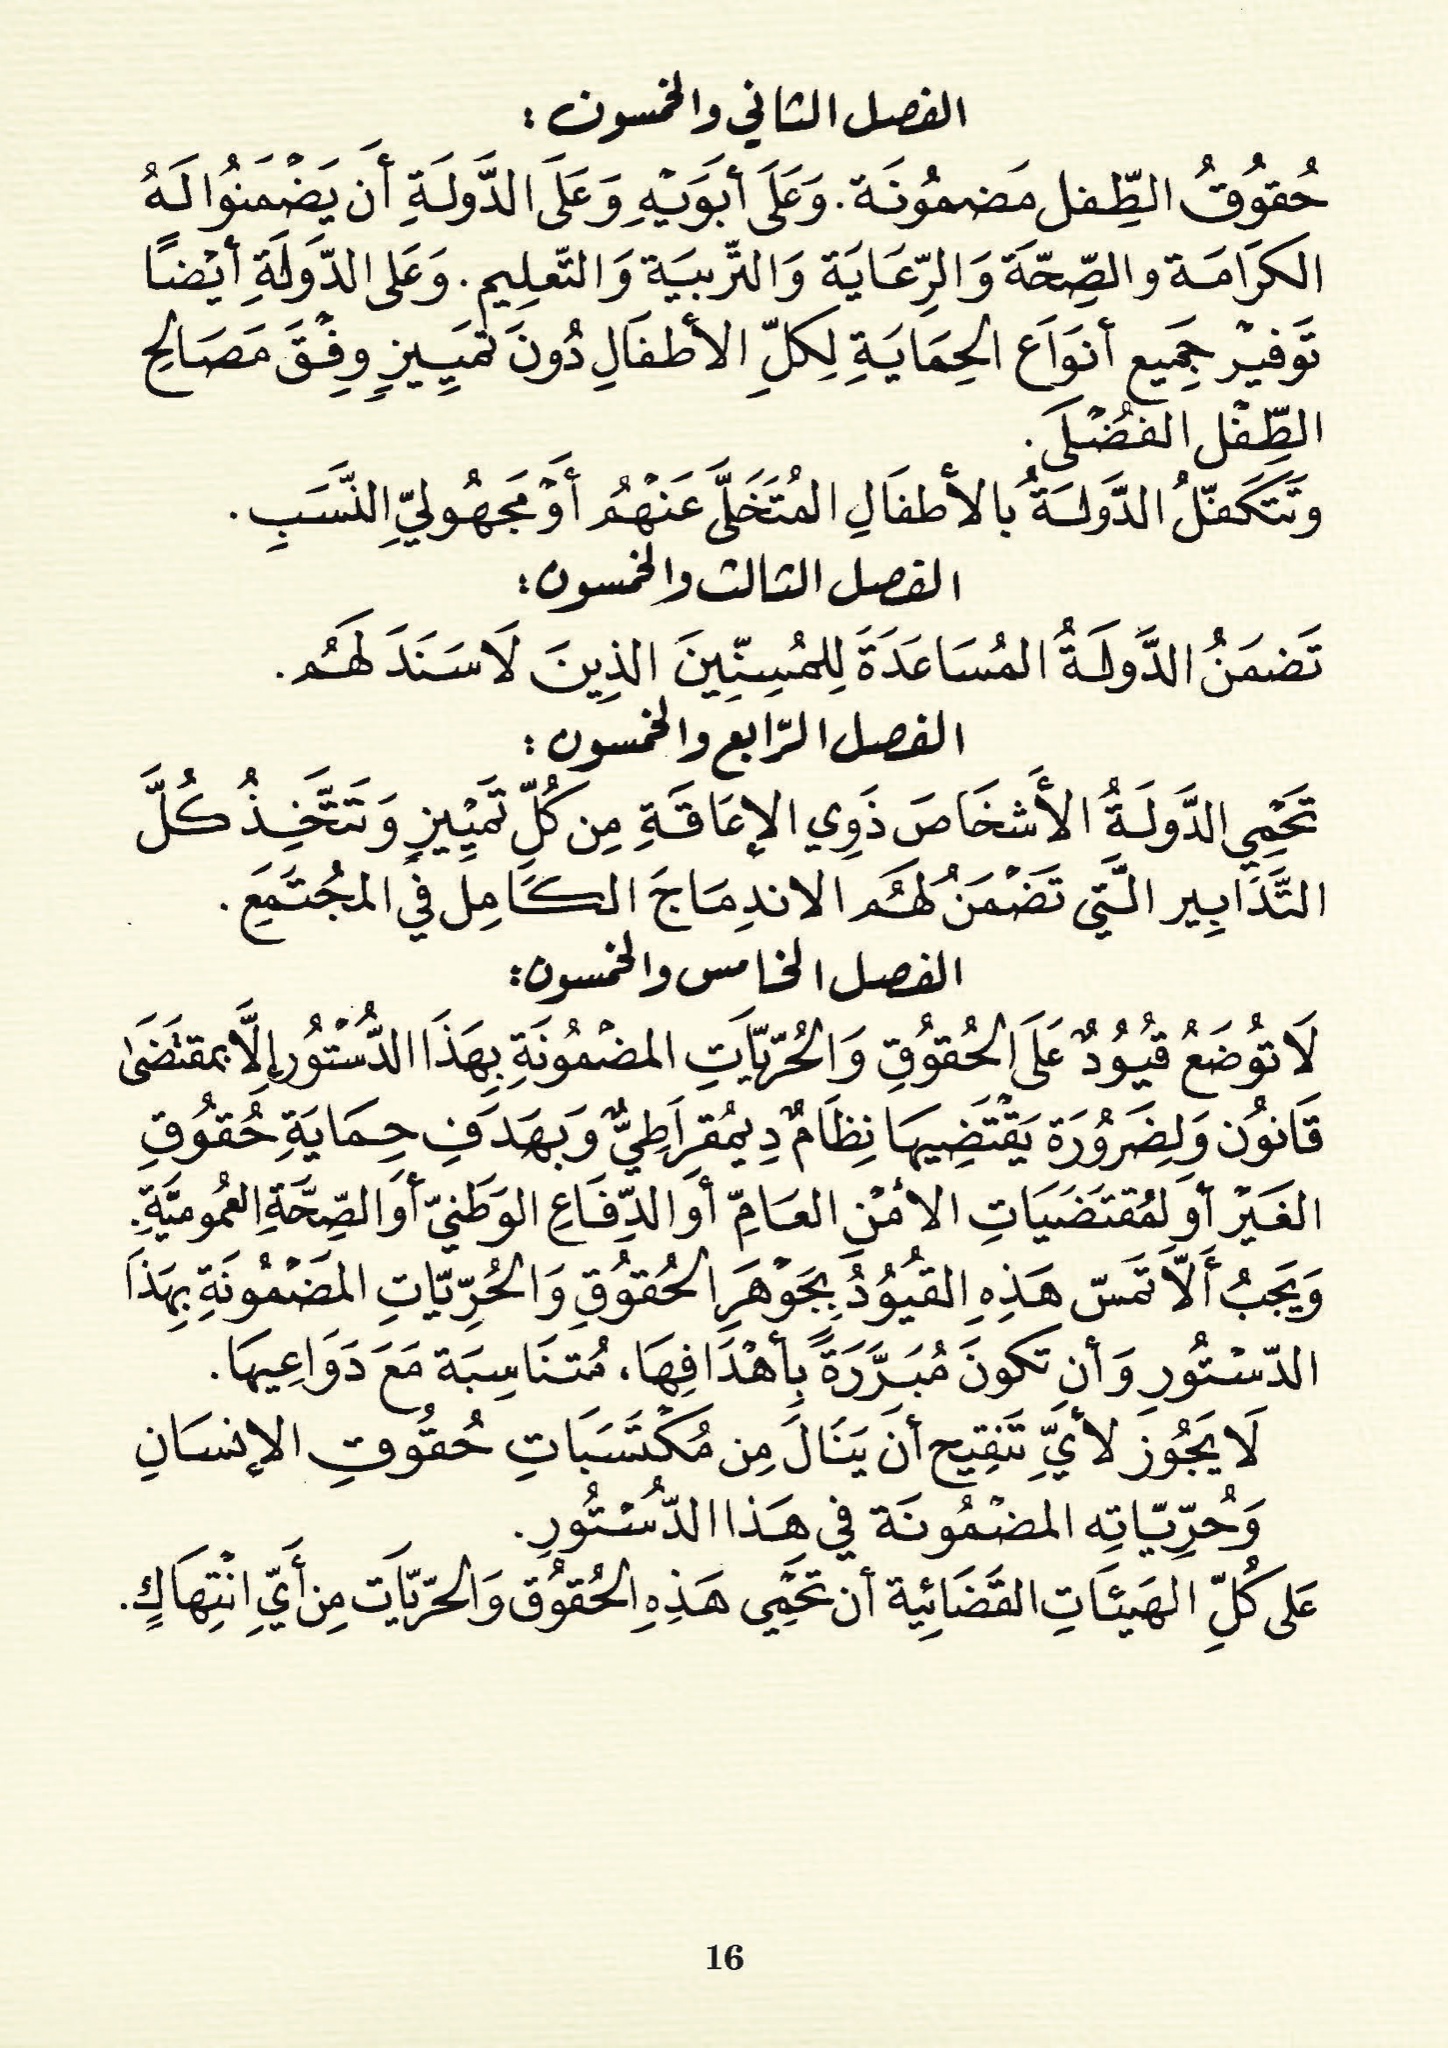 الفصل الثاني والخمسون :
حُقُوقُ الطِّفل مَضمُونَة. وَعَلَى أبَوَيْهِ وَعَلَى الدَّولَةِ أَن يَضْمَنُوا لَهُ
الكَرَامَة والصِّحّةَ وَالرِّعَايَة وَالتّربيَة وَالتّعلِيم. وَعَلى الدّولَةِ أيْضًا
تَوفيْر جَمِيع أنوَاع الحِمَايَةِ لِكلِّ الأطفَالِ دُونَ تمَييزٍ وِفْقَ مَصَالحِ
الطِّفْل الفُضْلَى.
وتَتَكَفّلُ الدَّولَةُ بالأطفَالِ المُتَخَلَّى عَنْهُمُ أَوْ مَجهُوليِّ النَّسَبِ .
الفصل الثالث والخمسون :
تَضمَنُ الدَّولَةُ المُسَاعَدَةَ لِلمُسِنِّينَ الذِينَ لَا سَنَدَ لَهَُم .
الفصل الرّابع والخمسون :
تَحْمِي الدَّولَةُ الأَشخَاصَ ذَوِي الإعَاقَةِ مِن كُلِّ تَمْيِيزٍ وَتَتَّخِذُ كُلَّ
التَّدَابِير الَّتِي تَضْمَنُ لهَُم الاندِمَاجَ الكَامِل فِي المجُتَمَعِ .
الفصل الخامس والخمسون :
لَا تُوضَعُ قُيُودٌ عَلَى الحُقُوقِ وَالحُرّيَّاتِ المضْمُونَةِ بِهَذَا الدُّسْتُور إلَّا بمقتَضَى
قَانُون وَلِضَرُورَة يَقْتَضِيهَا نِظَامٌ دِيمُقرَاطِيٌّ وَبِهَدَفِ حِمَايَةِ حُقُوقِ
الغَيْر أَو لمُقتَضَيَاتِ الأمْن العَامِّ أَو الدِّفَاعِ الوَطَنيّ أَو الصِّحَّةِ العُموميَّةِ.
وَيَجبُ أَلَّا تَمَسّ هَذِهِ القُيُودُ بِجَوْهَرِ الحُقُوقِ وَالحُرِّيّاتِ المَضْمُونَةِ بِهَذَا
الدّسْتُورِ وَأن تَكونَ مُبَرَّرَةً بِأَهْدَافِهَا، مُتنَاسِبَة مَعَ دَوَاعِيهَا.
لَا يَجُوزَ لأَيِّ تَنقِيح أَن يَنَالَ مِن مُكْتَسَبَاتِ حُقُوقِ الإنسَانِ
وَحُرِّيّاتِه المضْمُونَة في هَذا الدّسْتُورِ.
عَلى كُلِّ الهَيئَاتِ القَضَائِية أن تَحْمِي هَذِهِ الحُقوُق وَالحرّيَّات مِن أَيّ انْتِهَاكٍ.
16